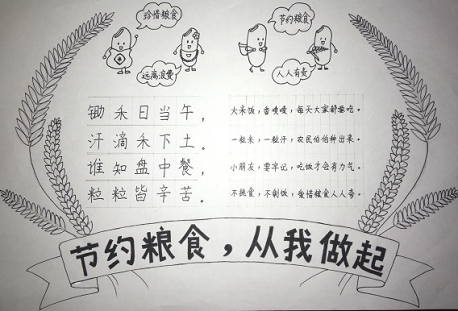 珍惜粮食
节约粮食
远离浪费
人人有责
锄禾日当午，
汗滴禾下土。
谁知盘中餐，
粒粒皆辛苦。
大米饭，香喷喷，每天大家都要吃。
一粒米，一粒汗，农民伯伯种出来。
小朋友，要牢记，吃饭才会有力气。
不挑食，不剩饭，爱惜粮食人人夸。
节约粮食，从我做起